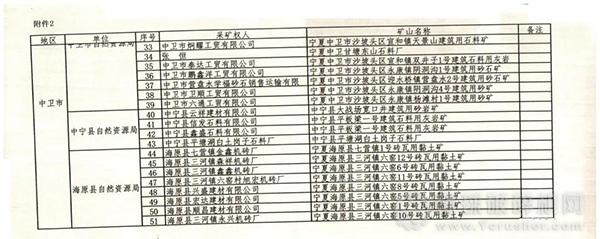 附件2
地区 单位 序号 采矿权人 矿山名称 备注
中卫市 中卫市自然资源局 33 中卫市炳耀工贸有限公司 宁夏中卫市沙坡头区宣和镇天景山建筑用石料矿
34 张 恒 宁夏中卫甘塘东山石料厂
35 中卫市泰达工贸有限公司 宁夏中卫市沙坡头区宣和镇双井子1号建筑石料用灰岩
36 中卫市鹏鑫洋工贸有限公司 宁夏中卫市沙坡头区永康镇阴洞沟1号建筑用砂矿
37 中卫市营盘水学福砂石销售运输有限 宁夏中卫市沙坡头区迎水桥镇营盘水2号建筑用砂石矿
38 中卫市卫顺工贸有限公司 宁夏中卫市沙坡头区永康镇阴洞沟4号建筑用砂矿
39 中卫市六通工贸有限公司 宁夏中卫市沙坡头区永康镇杨滩村1号建筑用砂矿
中宁县自然资源局 40 中宁县云祥建材有限公司 中宁县大战场宽口井建筑用砂岩矿
41 中宁县信发石料有限公司 中宁县平板梁一号建筑石料用灰岩矿
42 中宁县鑫盛石料有限公司 中宁县平板梁一号建筑石料用灰岩矿
43 中宁县平塘湖白土岗子石料厂 中宁县平塘湖白土岗子石料厂
海原县自然资源局 44 海原县七营镇金鑫机砖厂 宁夏海原县七营镇1号砖瓦用黏土矿
45 海原县三河镇森祥机砖厂 宁夏海原县三河镇六窑12号砖瓦用黏土矿
46 海原县三河镇鑫鑫机砖厂 宁夏海原县三河镇六窑6号砖瓦用黏土矿
47 海原县三河镇六窑村旭宏机砖厂 宁夏海原县三河镇六窑11号砖瓦用黏土矿
48 海原县兴盛建材有限公司 宁夏海原县三河镇六窑8号砖瓦用黏土矿
49 海原县宏达建材有限公司 宁夏海原县三河镇六窑5号砖瓦用黏土矿
50 海原县顺昌建材有限公司 宁夏海原县三河镇六窑1号砖瓦用黏土矿
51 海原县三河镇永兴机砖厂 宁夏海原县三河镇六窑10号砖瓦用黏土矿